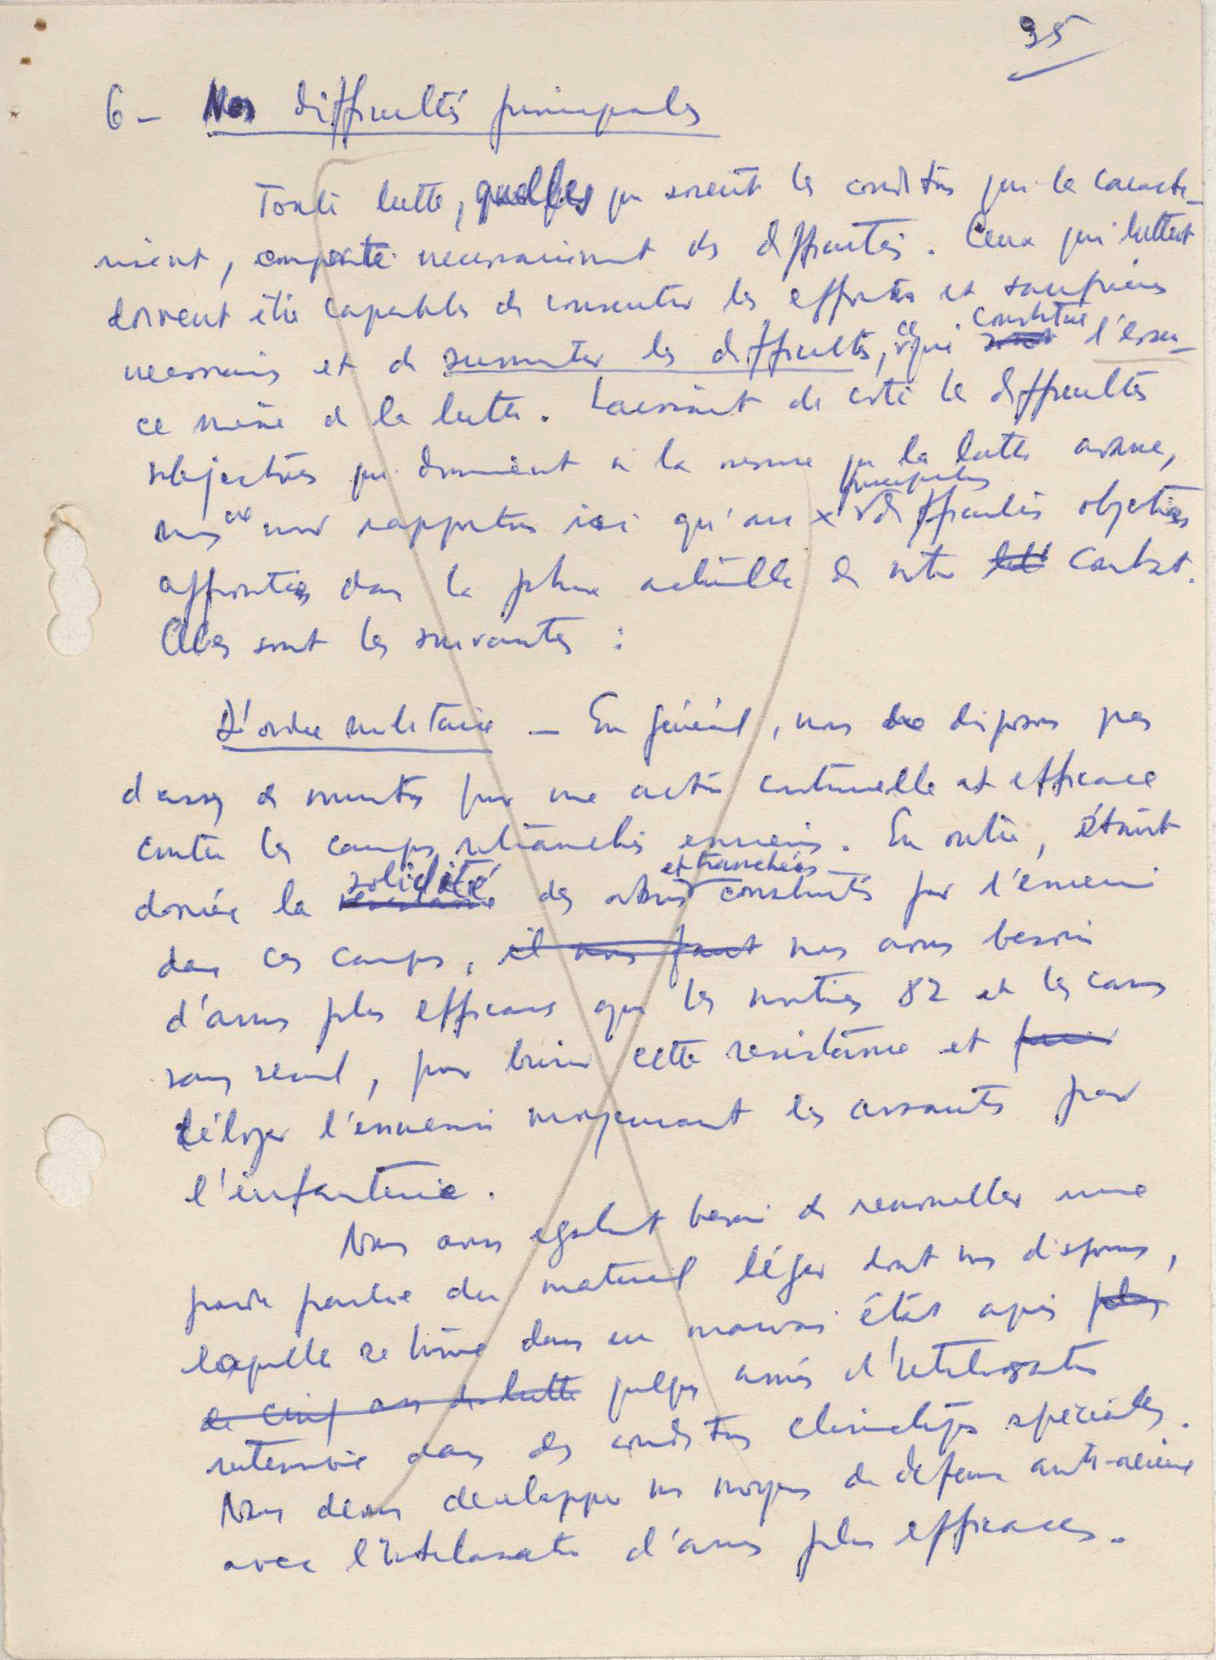 35
6 - Nos difficultés principales
Toute lutte, quelles que soient les conditions qui la caracté-
risent, comporte necessairement des difficultés. Ceux qui luttent
doivent être capables de consentir les efforts et sacrifices
necessaires et de surmonter les difficultés, ce qui sont constitue l'essen-
ce même de la lutte. Laissant de coté les difficultés
subjectives qui diminuent à la mesure que la lutte avance,
nous ne nous rapportons ici qu'aux principales difficultés objectives
affrontées dans la phase actuelle de notre combat.
Elles sont les suivantes :
D'ordre militaire - En général, nous ne disposons pas
d'assez de munitions pour une action continuelle et efficace
contre les camps retranchés ennemis. En outre, étant
donnée la résistance solidité des abris et tranchées construits par l'ennemi
dans ces camps, il nous faut nous avons besoin
d'armes plus efficaces que les mortiers 82 et les canons
sans recul, pour briser cette resistance et
déloger l'ennemi moyennant les assauts par
l'infanterie.
Nous avons egalement besoin de renouveller une
grande partie du materiel léger dont nous disposons,
laquelle se trouve dans un mauvais état après plus
de cinq ans de lutte quelques années d'utilisation
intensive dans des conditions climatiques speciales.
Nous devons developper nos moyens de defense anti-aerienne
avec l'utilisation d'armes plus efficaces.